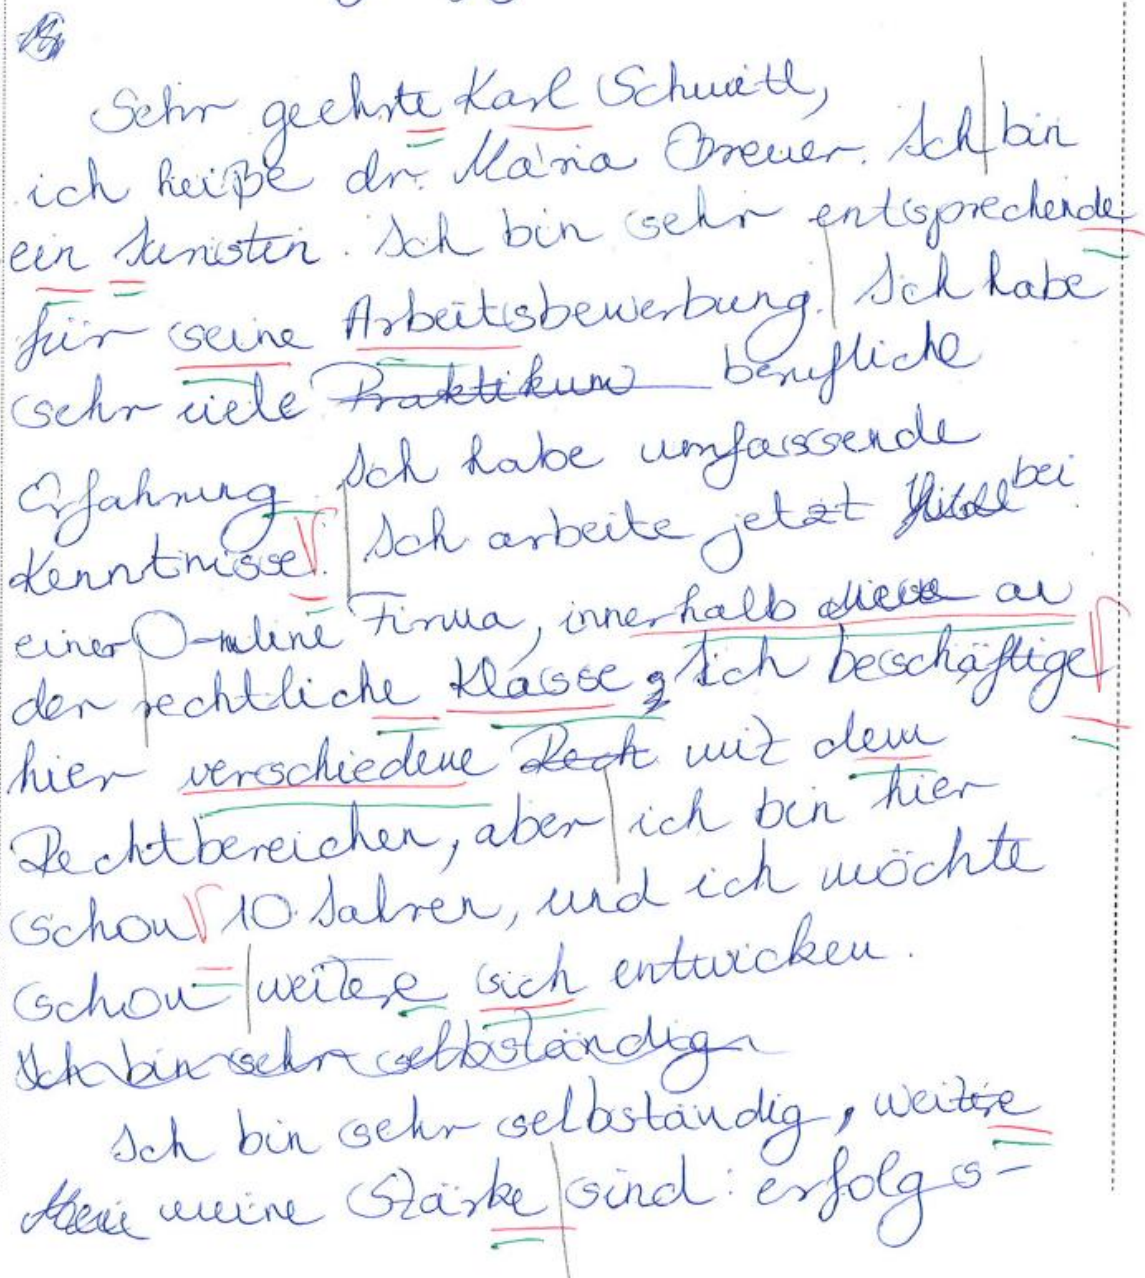 Sehr geehrte Karl Schmidt,
ich heiße dr. Maria Brewer. Ich bin
ein Juristin. Ich bin sehr entsprechende
für seine Arbeitsbewerbung. Ich habe
sehr viele Praktikum berufliche
Erfahrung. Ich habe umfassende
Kenntnisse. Ich arbeite jetzt bei
einer O-nline Firma, innerhalb an
der rechtliche Klasse, ich beschäftige
hier verschiedene Rech mit dem
Rechtbereichen, aber ich bin hier
schon 10 Jahren, und ich möchte
schon weitere sich entwicken.
Ich bin sehr selbständig
Ich bin sehr selbständig, weitere
meine Stärke sind: erfolgs-